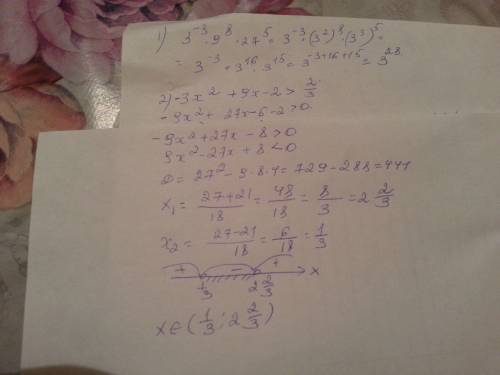 1) 3⁻³ · 9⁸ · 27⁵ = 3⁻³ · (3²)⁸ · (3³)⁵ =
= 3⁻³ · 3¹⁶ · 3¹⁵ = 3⁻³⁺¹⁶⁺¹⁵ = 3²⁸
2) -3x² + 9x - 2 > 2/3
-9x² + 27x - 6 - 2 > 0
-9x² + 27x - 8 > 0
9x² - 27x + 8 < 0
D = 27² - 9 · 8 · 4 = 729 - 288 = 441
x₁ = (27+21)/18 = 48/18 = 8/3 = 2 2/3
x₂ = (27-21)/18 = 6/18 = 1/3
+ - + x
1/3 2 2/3
x ∈ (1/3 ; 2 2/3)